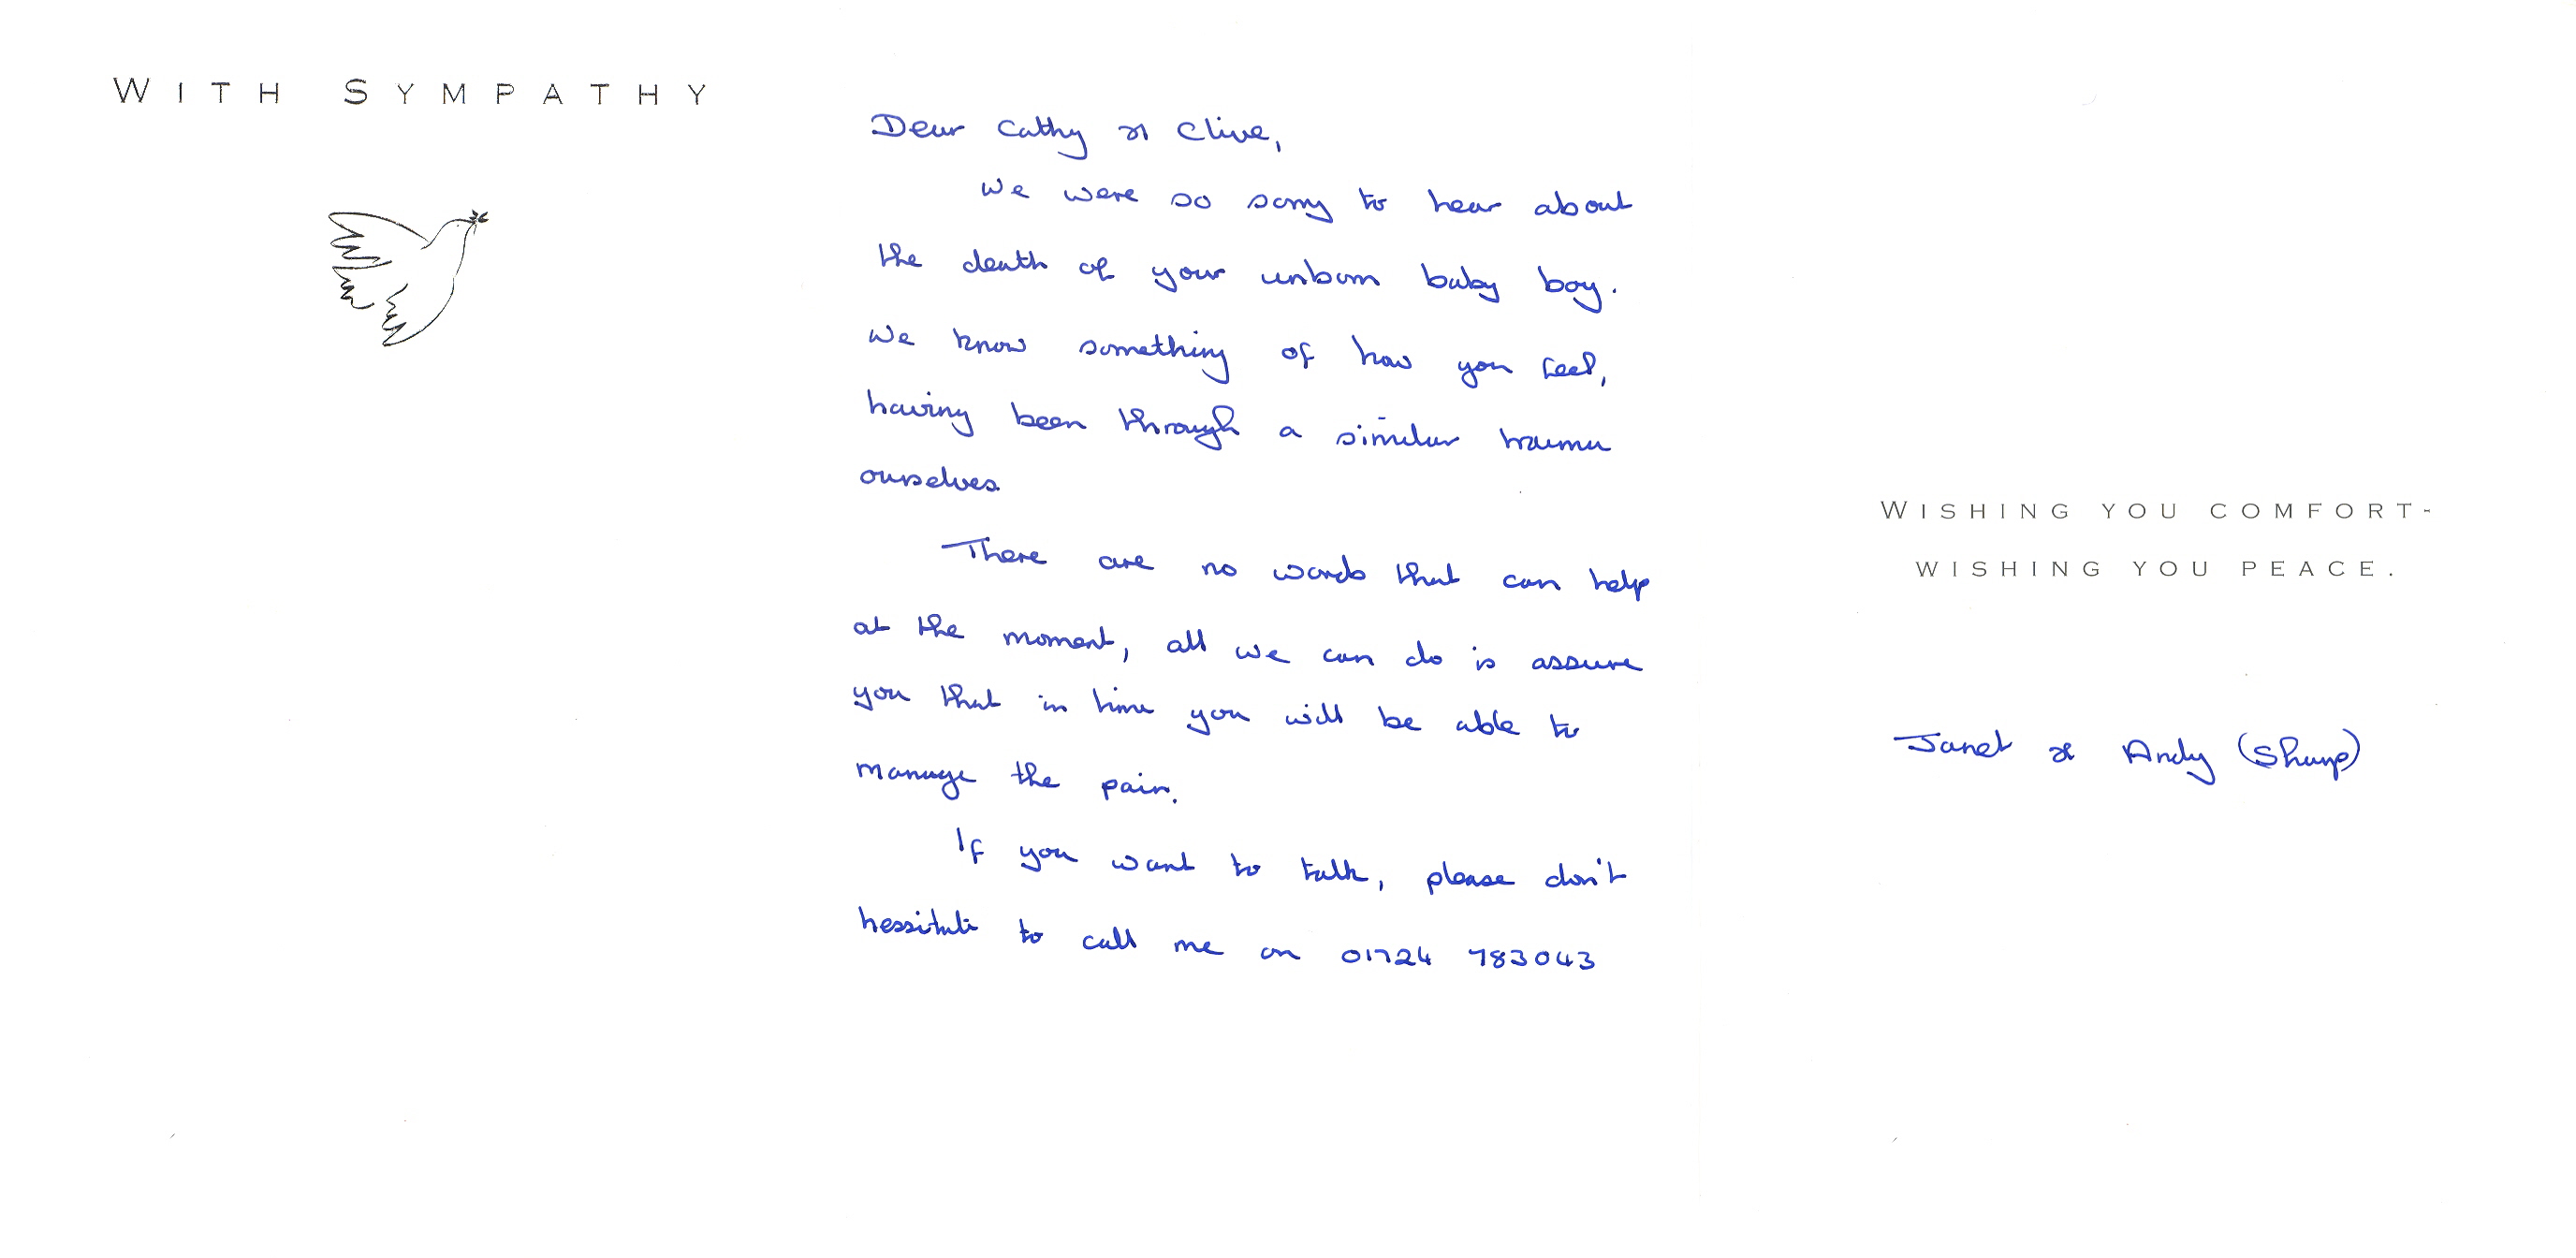 WITH SYMPATHY
Dear Cathy & Clive,
We were so sorry to hear about
the death of your unborn baby boy.
We know something of how you feel,
having been through a similar trauma
ourselves.
There are no words that can help
at the moment, all we can do is assure
you that in time you will be able to
manage the pain.
If you want to talk, please don't
hessitate to call me on 01724 783043
WISHING YOU COMFORT-
WISHING YOU PEACE.
Janet & Andy (Sharp)